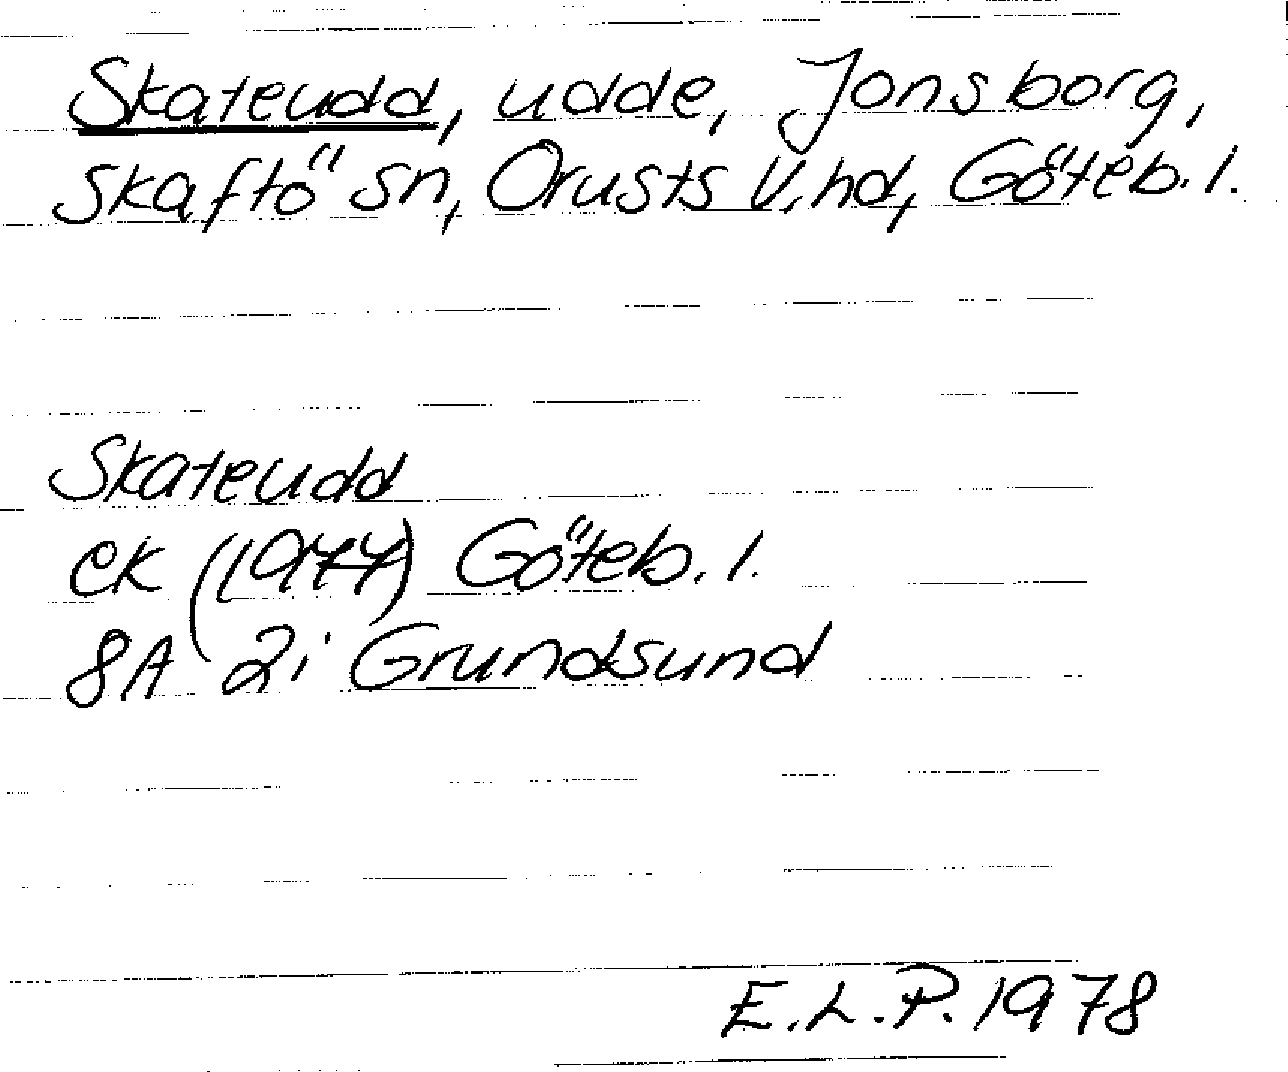 Skateudd, udde, Jonsborg,
Skaftö sn, Orusts V. hd, Göteb. l.
Skateudd
ek (1977) Göteb. l.
8A 2i Grundsund
E.L.P. 1978